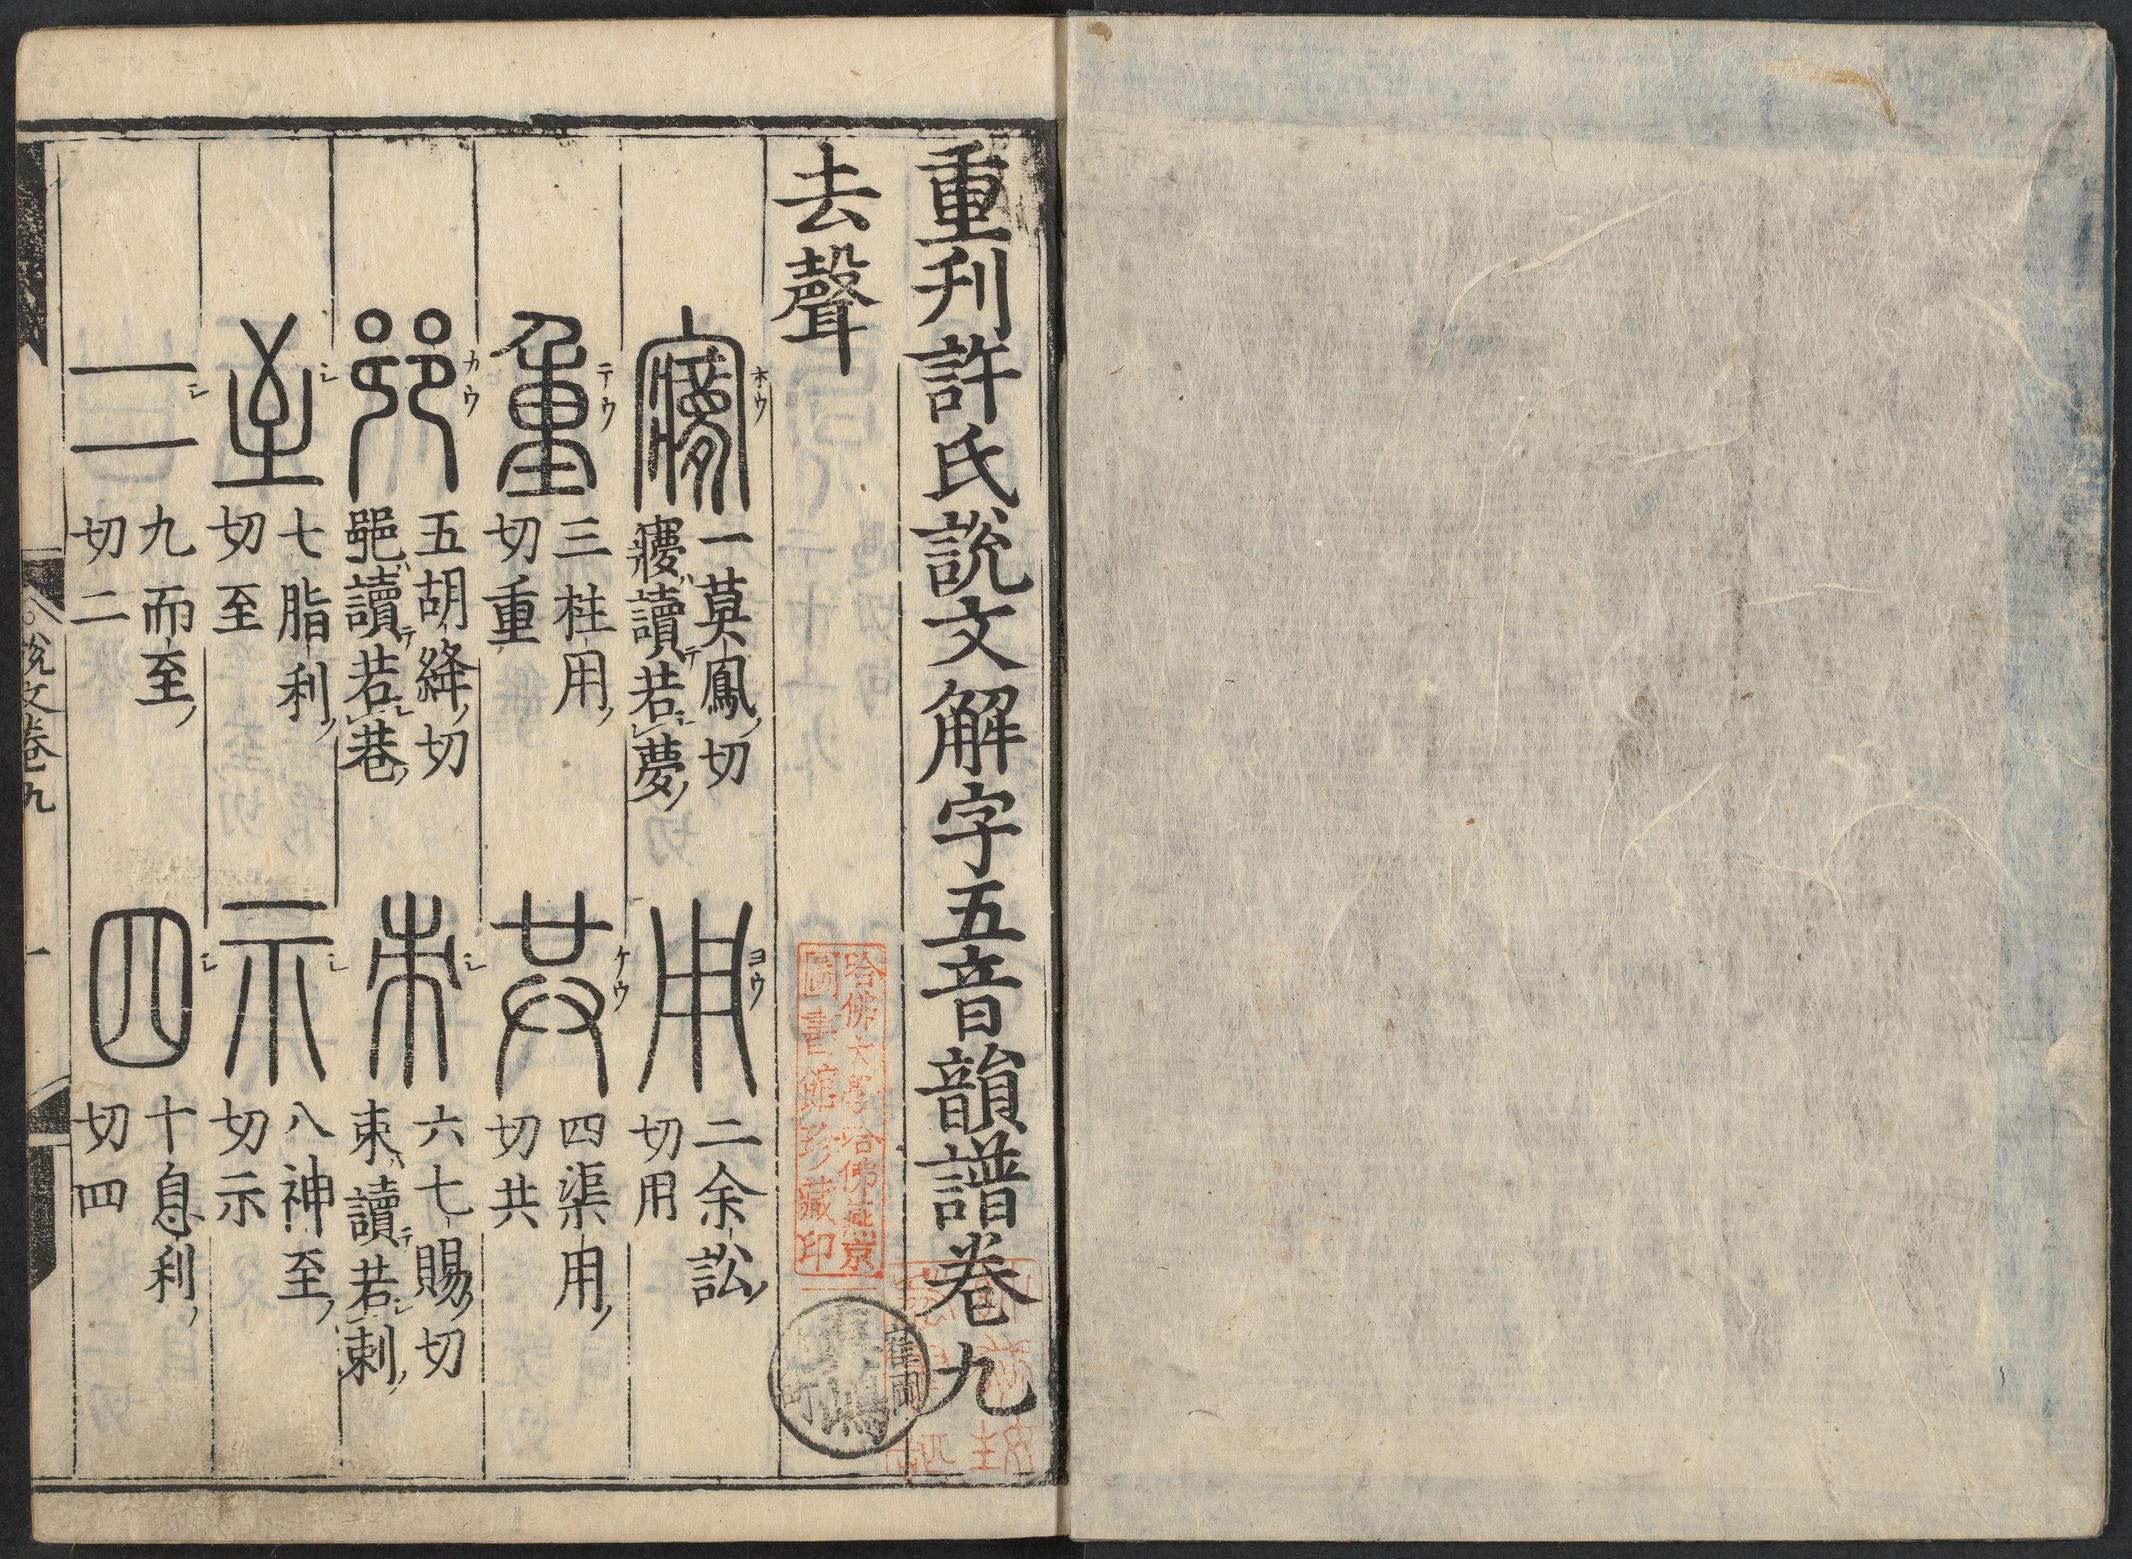 重刋許氏説文解字五音韻譜卷九
去聲
㝱 ホウ 一莫鳳切
㝱讀若夢
用 ヨウ 二余訟
切用
重 テウ 三柱用
切重
共 ケウ 四渠用
切共
𨙨 カウ 五胡絳切
𨙨讀テ若シ巷
朿 シ 六七賜切
朿讀テ若シ刺
至 シ 七脂利
切至
示 シ 八神至
切示
二 シ 九而至
切二
四 シ 十息利
切四
説文卷九
一
哈佛大學哈佛燕京
圖書館珍藏印